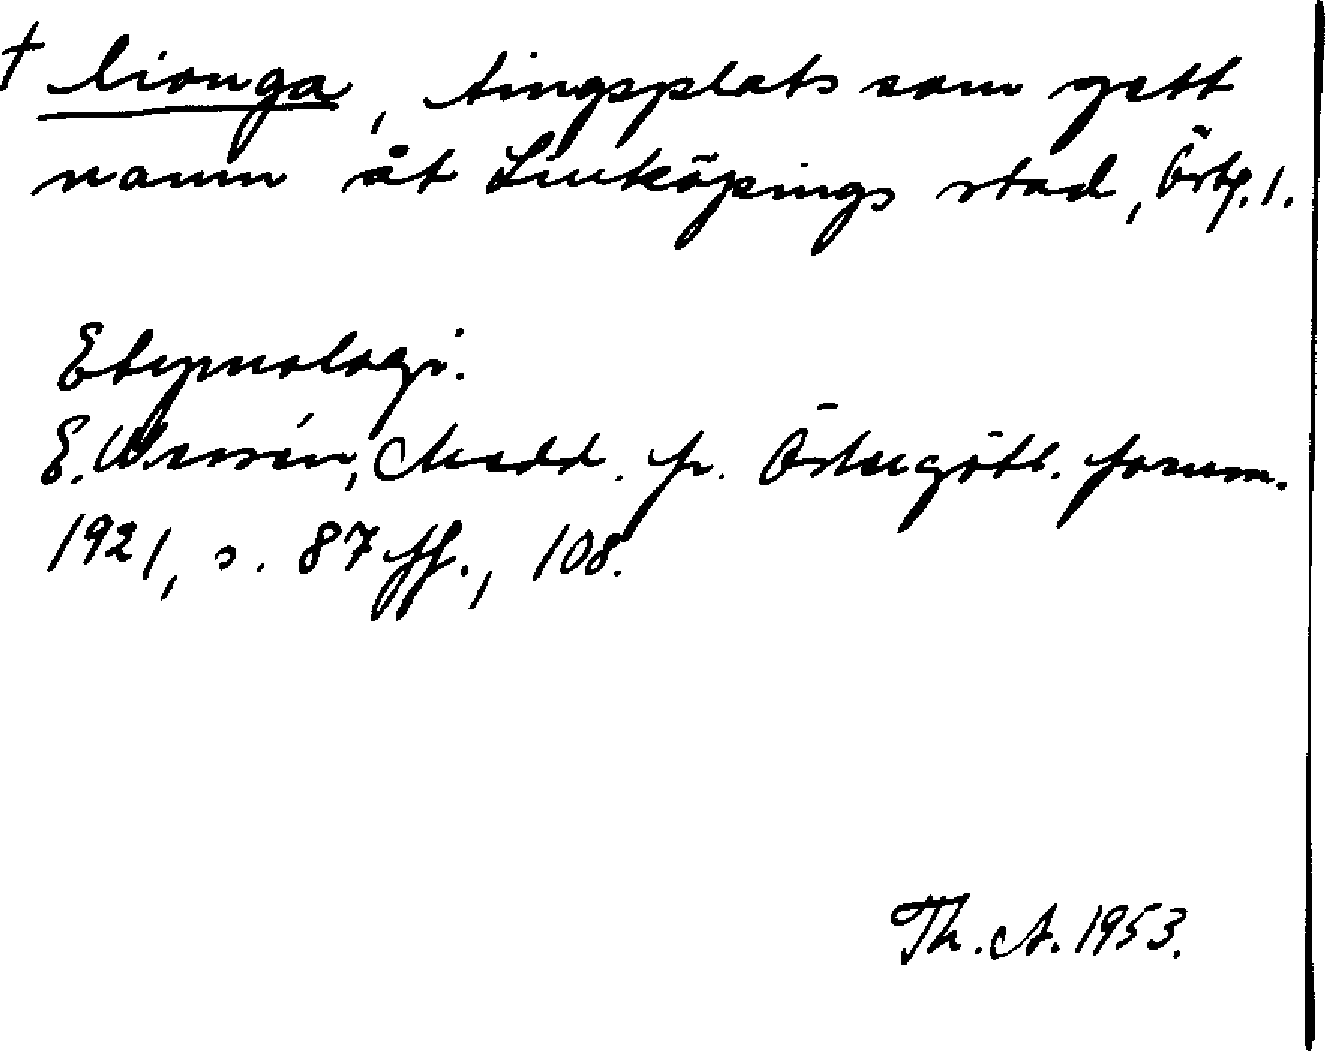 † lionga, tingsplats som gett
namn åt Linköpings stad, Östg. l.
Etymologi.
E. Wessén, Medd. fr. Östergötl. fornm.
1921, s. 87 ff., 108.
Th. A. 1953.